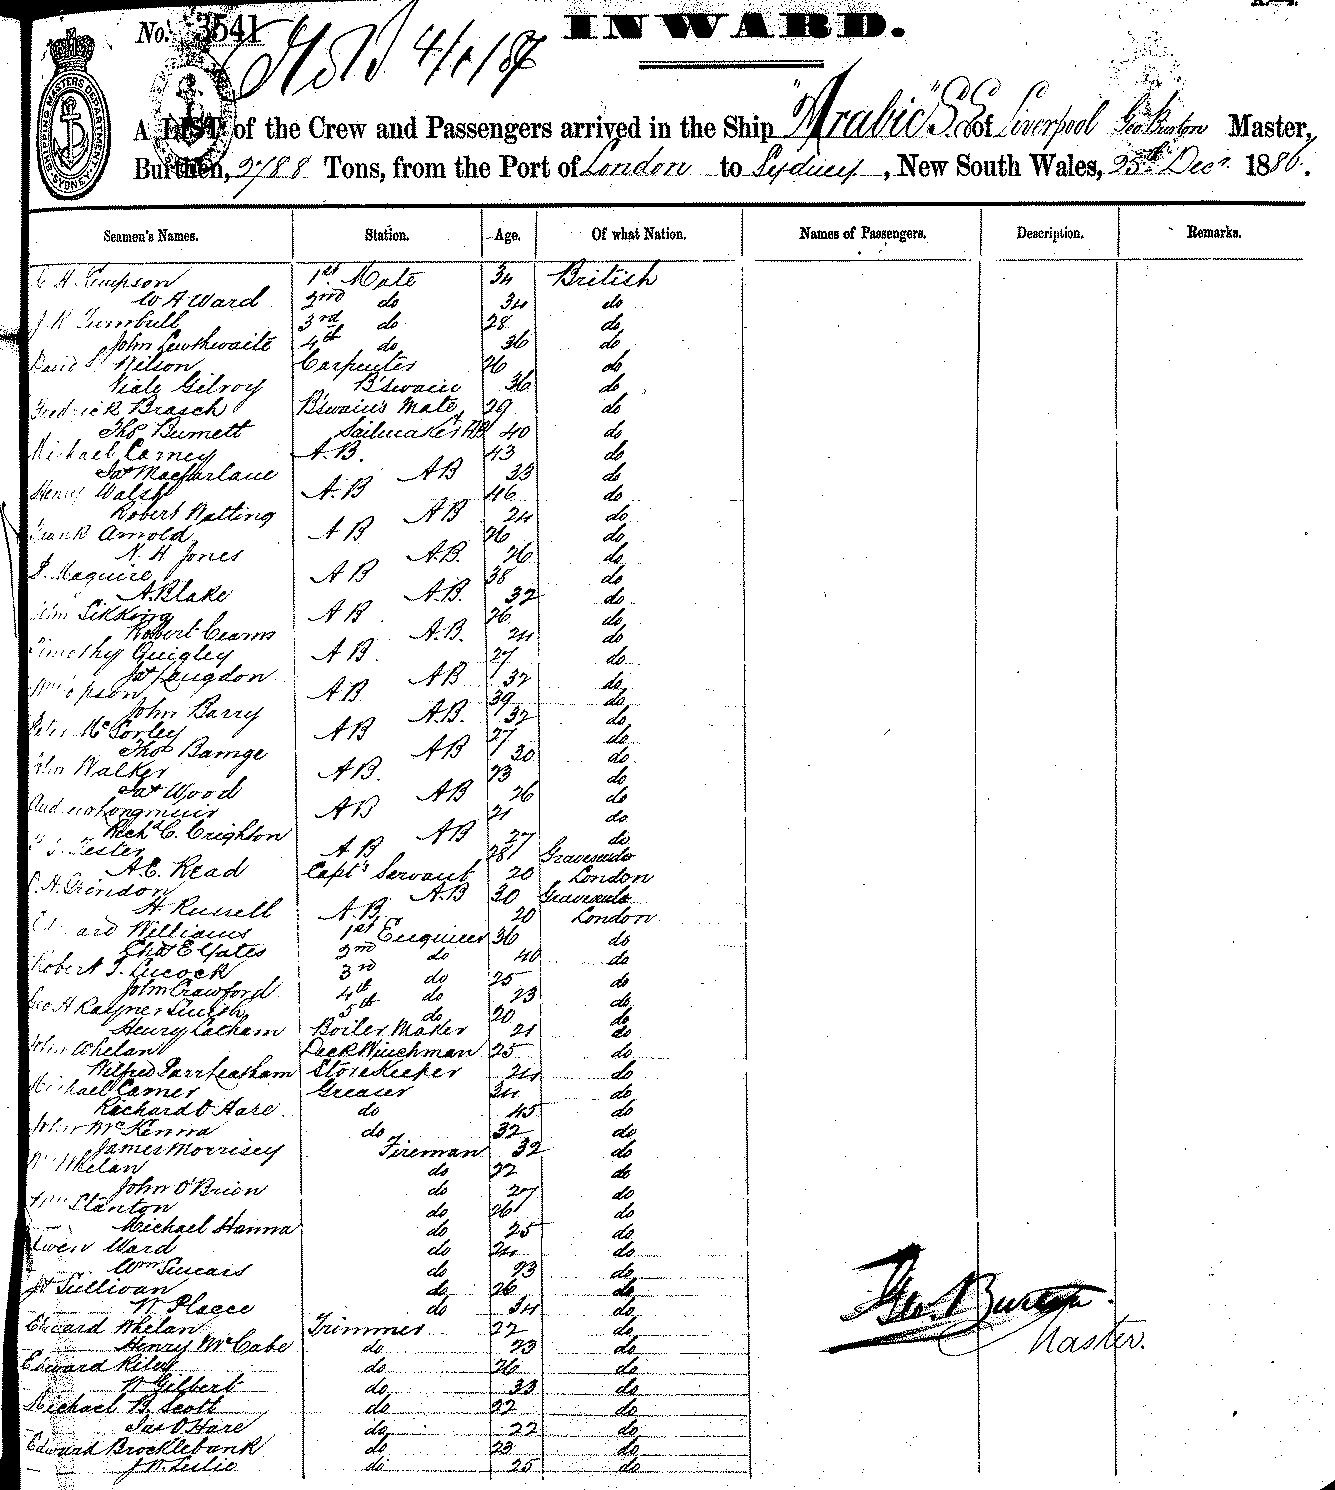 No. 3541
INWARD.
A LIST of the Crew and Passengers arrived in the Ship "Arabic" S.S. of Liverpool Geo Burton Master,
Burthen, 2788 Tons, from the Port of London to Sydney, New South Wales, 25th Decr. 1886.
Seamen's Names. Station. Age. Of what Nation. Names of Passengers. Description. Remarks.
H. 1st Mate 34 British
W A Ward 2nd do 34 do
J. R Turnbull 3rd do 28 do
John Lewthwaite 4th do 36 do
David Nelson Carpenter 26 do
Gilroy B'swain 36 do
Fredrick Brasch B'swain's Mate 29 do
Thos Burnett Sailmaker 40 do
Michael Carney A.B. 43 do
Jas Macfarlane AB 33 do
Henry Walsh A.B 46 do
Robert Watting AB 24 do
Frank Arnold AB 26 do
N. H Jones A.B. 26 do
Maguire AB 38 do
A. Blake A.B. 32 do
John Sikking AB 26 do
Robert Cearns A.B. 24 do
Timothy Quigley AB 27 do
Jas Langdon AB 32 do
Wm AB 39 do
John Barry A.B. 32 do
Peter McSorley AB 27 do
Thos Bamge AB 30 do
John Walker AB. 23 do
Jas Wood AB 26 do
Andrew Longmuir AB 21 do
Richd C. Crighton AB 27 do
Tester AB 28 Gravesend
A.E. Read Capt's Servant 20 London
H. Grindon A.B 30 Gravesend
H Russell A.B. 20 London
Edward Williams 1st Engineer 36 do
Chas E Yates 2nd do 40 do
Robert J. 3rd do 25 do
John Crawford 4th do 23 do
Geo H Rayner 5th do 20 do
Henry Latham Boiler Maker 21 do
John Whelan Deck Winchman 25 do
Wilfred Storekeeper 24 do
Michael Carner Greaser 34 do
Richard O Hare do 45 do
John McKenna do 32 do
James Morrisey Fireman 32 do
Wm Whelan do 22 do
John O'Brien do 27 do
Wm Stanton do 26 do
Michael Hanna do 25 do
Owen Ward do 24 do
Wm do 23 do
Jas Sullivan do 26 do
W. Places do 34 do
Edward Whelan Trimmer 22 do
Henry McCabe do 23 do
Edward Riley do 26 do
W Gilbert do 33 do
Michael B. Scott do 22 do
Jas O'Hare do 22 do
Edward Brocklebank do 23 do
J. W. Leslie do 25 do
Geo. Burton
Master.